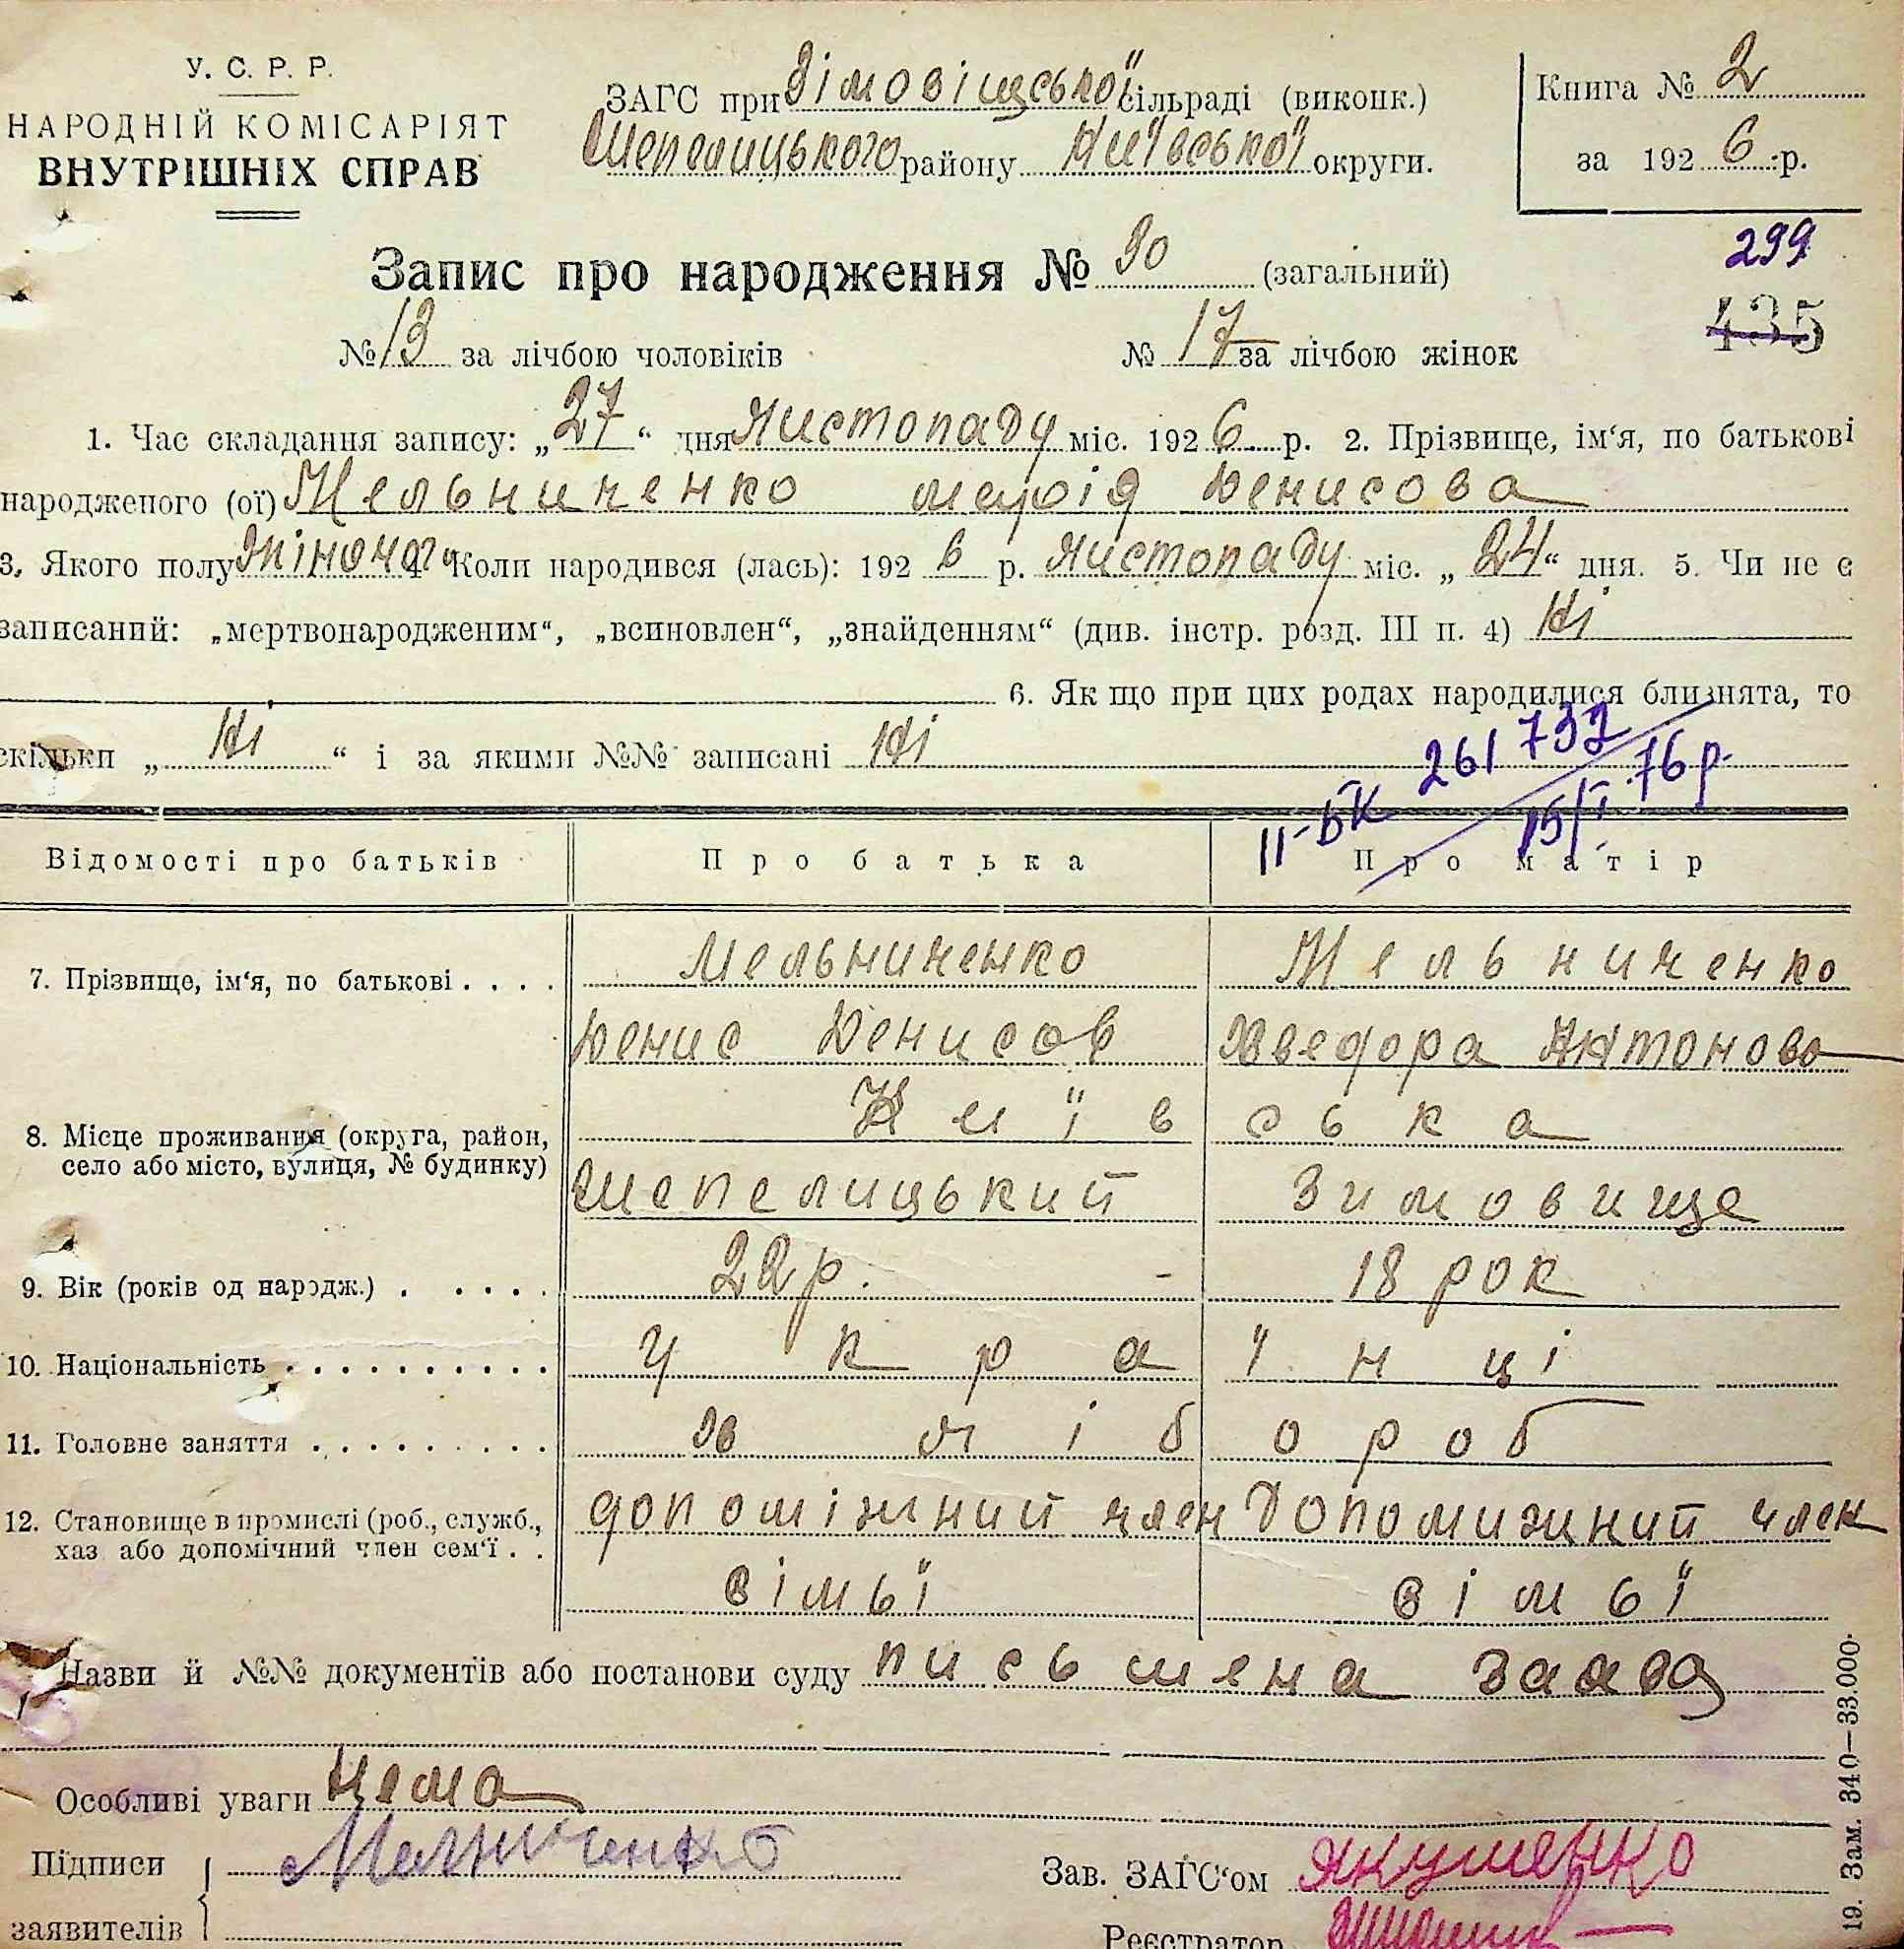 У. С. Р. Р.
НАРОДНІЙ КОМІСАРІЯТ
ВНУТРІШНІХ СПРАВ
ЗАГС при Зімовіщської сільраді (виконк.)
Шепелицького району Київської округи.
Книга № 2
за 1926 р.
299
435
Запис про народження № 30 (загальний)
№ 13 за лічбою чоловіків № 17 за лічбою жінок
1. Час складання запису: „27“ дня Листопаду міс. 1926 р. 2. Прізвище, ім‘я, по батькові
народженого (ої) Мельниченко марія Денисова
3. Якого полу жіночого 4. Коли народився (лась): 1926 р. Листопаду міс. „24“ дня. 5. Чи не є
записаний: „мертвонародженим“, „всиновлен“, „знайденням“ (див. інстр. розд. III п. 4) Ні
6. Як що при цих родах народилися близнята, то
скільки „Ні“ і за якими №№ записані Ні
II-БК 261732 15/I.76р.
Відомості про батьків Про батька Про матір
7. Прізвище, ім‘я, по батькові . . . . Мельниченко Мельниченко
Денис Денисов Хведора Антонова
8. Місце проживання (округа, район,
село або місто, вулиця, № будинку)
Київська
Шепелицький Зимовище
9. Вік (років од народж.) . . . . . 22 р. - 18 рок
10. Національність . . . . . . . . . . Українці
11. Головне заняття . . . . . . . . . Хлібороб
12. Становище в промислі (роб., служб.,
хаз або допомічний член сем‘ї . .
допоміжний член Допомижний член
сімьї сімьї
Назви й №№ документів або постанови суду письмена заява
Особливі уваги Нема
Підписи
заявителів
Мельниченко
Зав. ЗАГС‘ом Якушенко
Реєстратор
19. Зам. 340—33.000.